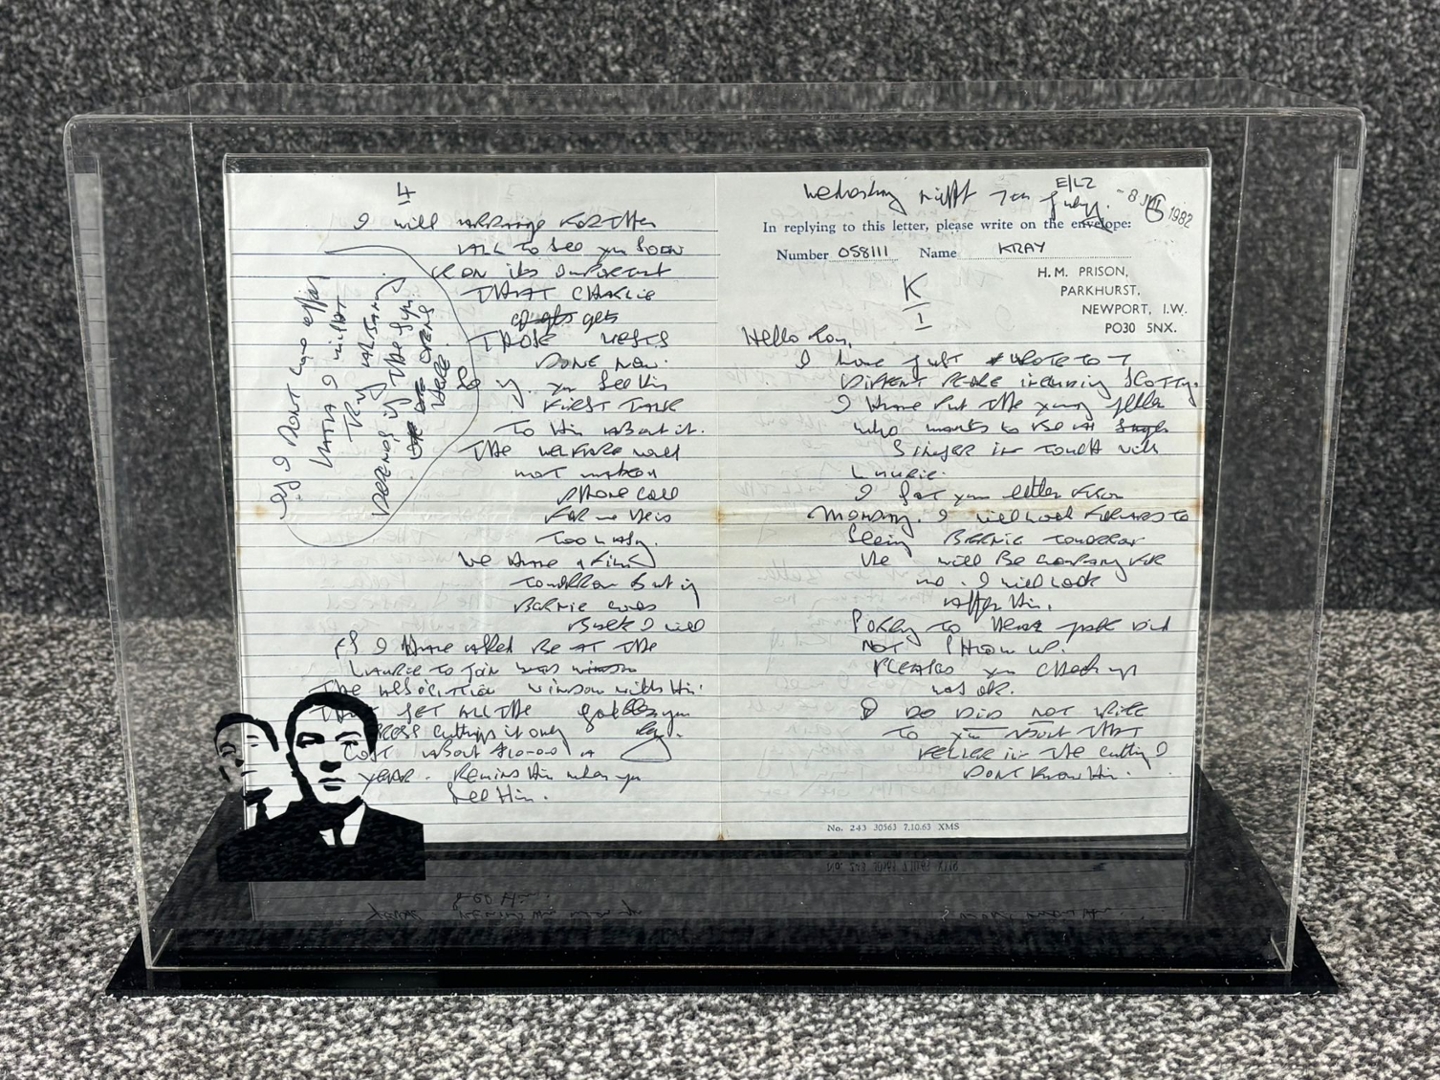 4
I will arrange for them
all to see you soon
Ron its important
that Charlie
gets
those vests
done now.
So if you see him
first talk
to him about it.
The welfare wont
not make a
phone call
for me heis
too lazy.
We have a film
tomorrow but if
Bernie comes
Back I will
PS I have asked Be at the
Laurie to join window
The window with him.
That get all the God Bless you
press cuttings it only Reg.
cost about £10-00 a
year. Remind him when you
see him.
Reg I Dont
what I might
try
Depends if the gym
opens
here.
Wednesday night 7th July. E/L2
- 8 JUL 1982
In replying to this letter, please write on the envelope:
Number 058111 Name KRAY
H. M. PRISON,
PARKHURST,
NEWPORT, I.W.
PO30 5NX.
K
1
Hello Ron,
I have just wrote to 7
different people including Scotty.
I have put the young feller
who wants to be a
Singer in touch with
Laurie.
I got your letter from
Monday. I will look forward to
seeing Bernie tomorrow
He will be working for
me. I will look
after him.
Sorry to hear did
not show up.
Pleased you check up
was ok.
I DO DID NOT write
to you about that
feller in the cutting I
dont know him.
No. 243 30563 7.10.63 XMS